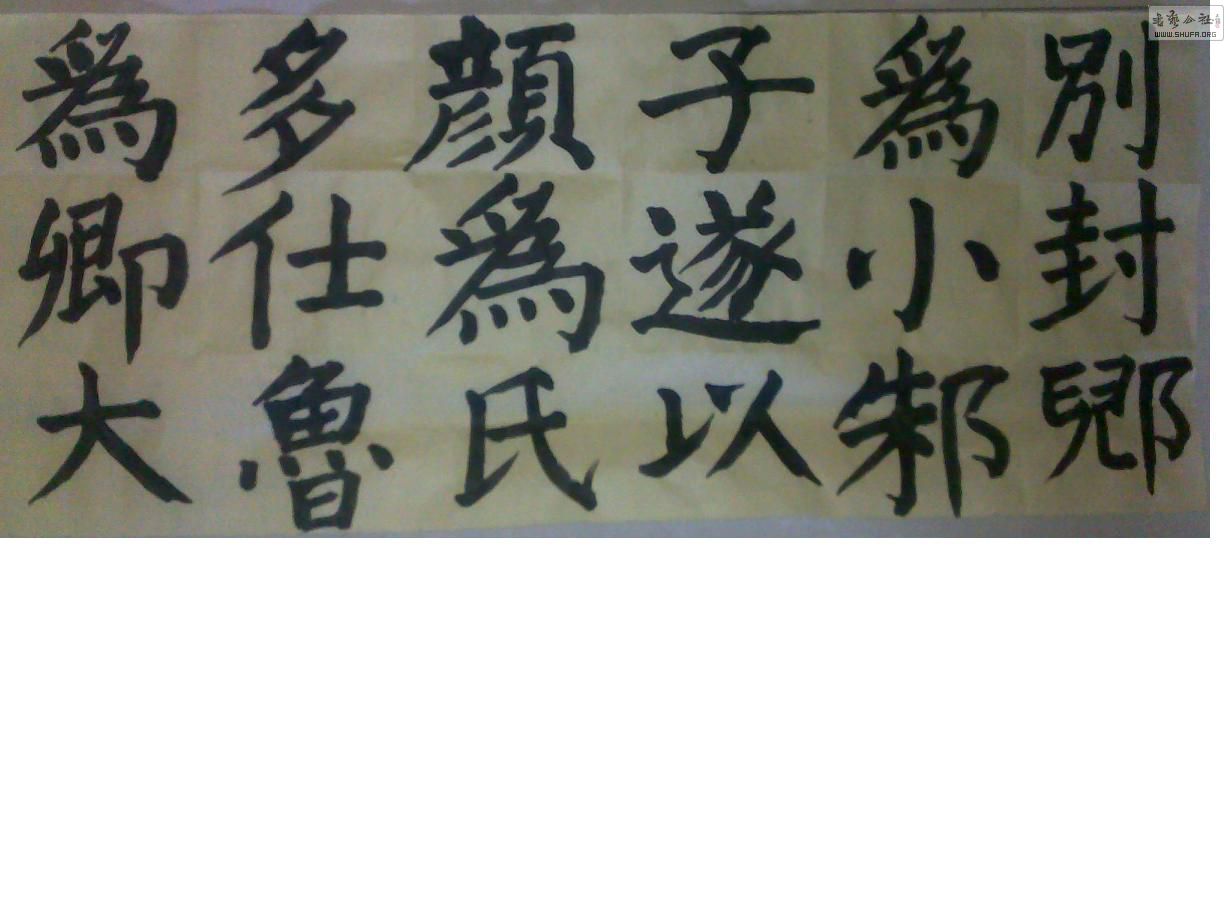 別封郳
爲小邾
子遂以
顏爲氏
多仕魯
爲卿大
WWW.SHUFA.ORG